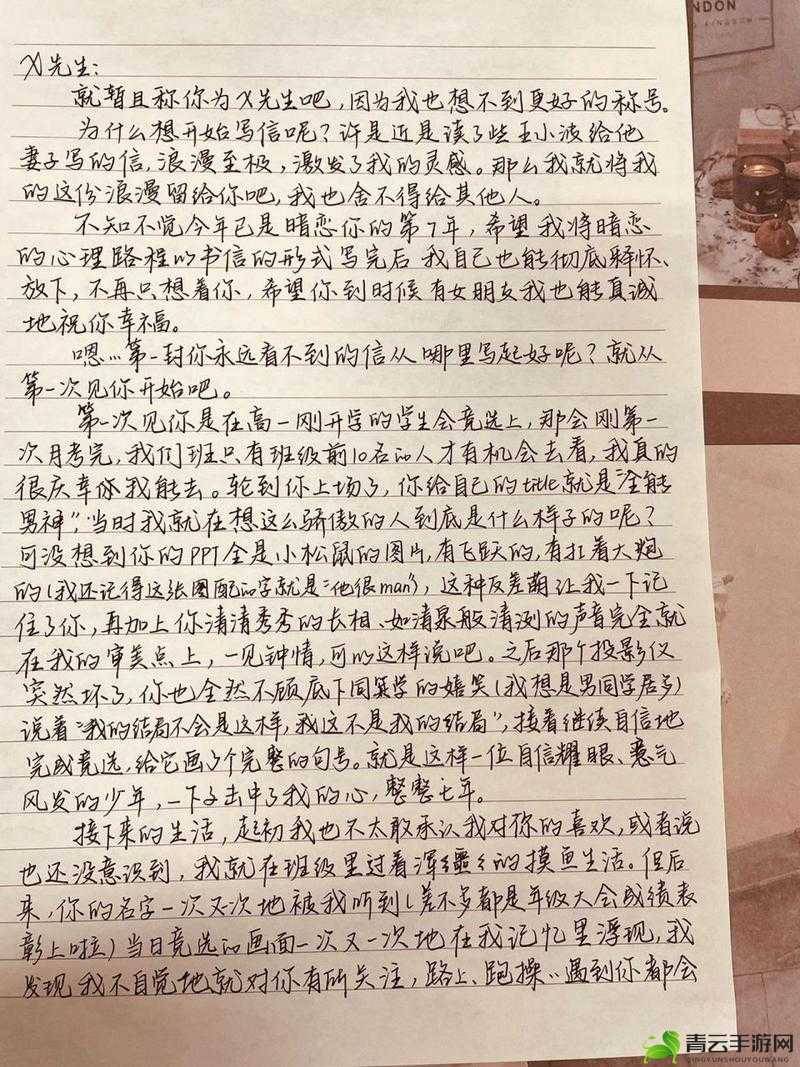 X先生:
就暂且称你为X先生吧,因为我也想不到更好的称号。
为什么想开始写信呢?许是近是读了些王小波给他
妻子写的信,浪漫至极,激发了我的灵感。那么我就将我
的这份浪漫留给你吧,我也舍不得给其他人。
不知不觉今年已是暗恋你的第7年,希望我将暗恋
的心理路程以书信的形式写完后我自己也能彻底释怀、
放下,不再只想着你,希望你到时候有女朋友我也能真诚
地祝你幸福。
嗯…第一封你永远看不到的信从哪里写起好呢?就从
第一次见你开始吧。
第一次见你是在高一刚开学的学生会竞选上,那会刚第一
次月考完,我们班只有班级前10名的人才有机会去看,我真的
很庆幸我能去。轮到你上场了,你给自己的title就是“全能
男神”,当时我就在想这么骄傲的人到底是什么样子的呢?
可没想到你的PPT全是小松鼠的图片,有飞跃的,有扛着大炮
的(我还记得这张图配的字就是:“他很man”),这种反差萌让我一下记
住了你,再加上你清清秀秀的长相、如清泉般清冽的声音完全就
在我的审美点上,一见钟情,可以这样说吧。之后那个投影仪
突然坏了,你也全然不顾底下同学的嬉笑(我想是男同学居多)
说着“我的结局不会是这样,我这不是我的结局”,接着继续自信地
完成竞选,给它画了个完整的句号。就是这样一位自信耀眼、意气
风发的少年,一下子击中了我的心,整整七年。
接下来的生活,起初我也不太敢承认我对你的喜欢,或者说
也还没意识到,我就在班级里过着浑噩的摸鱼生活。但后
来,你的名字一次又次地被我听到(差不多都是年级大会成绩表
彰上啦)当日竞选的画面一次又一次地在我记忆里浮现,我
发现我不自觉地就对你有所关注,路上、跑操…遇到你都会
NDON
KINGDOM
青云手游网
QINGYUNSHOUYOUWANG